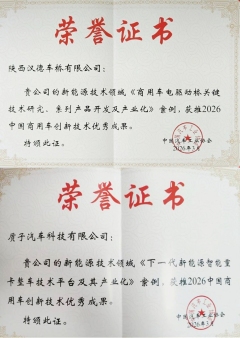 荣誉证书
陕西汉德车桥有限公司：
贵公司的新能源技术领域《商用车电驱动桥关键
技术研究、系列产品开发及产业化》案例，获推2026
中国商用车创新技术优秀成果。
特颁此证。
中国汽车工业协会
2026年3月
荣誉证书
质子汽车科技有限公司：
贵公司的新能源技术领域《下一代新能源智能重
卡整车技术平台及其产业化》案例，获推2026中国商
用车创新技术优秀成果。
特颁此证。
2026年3月